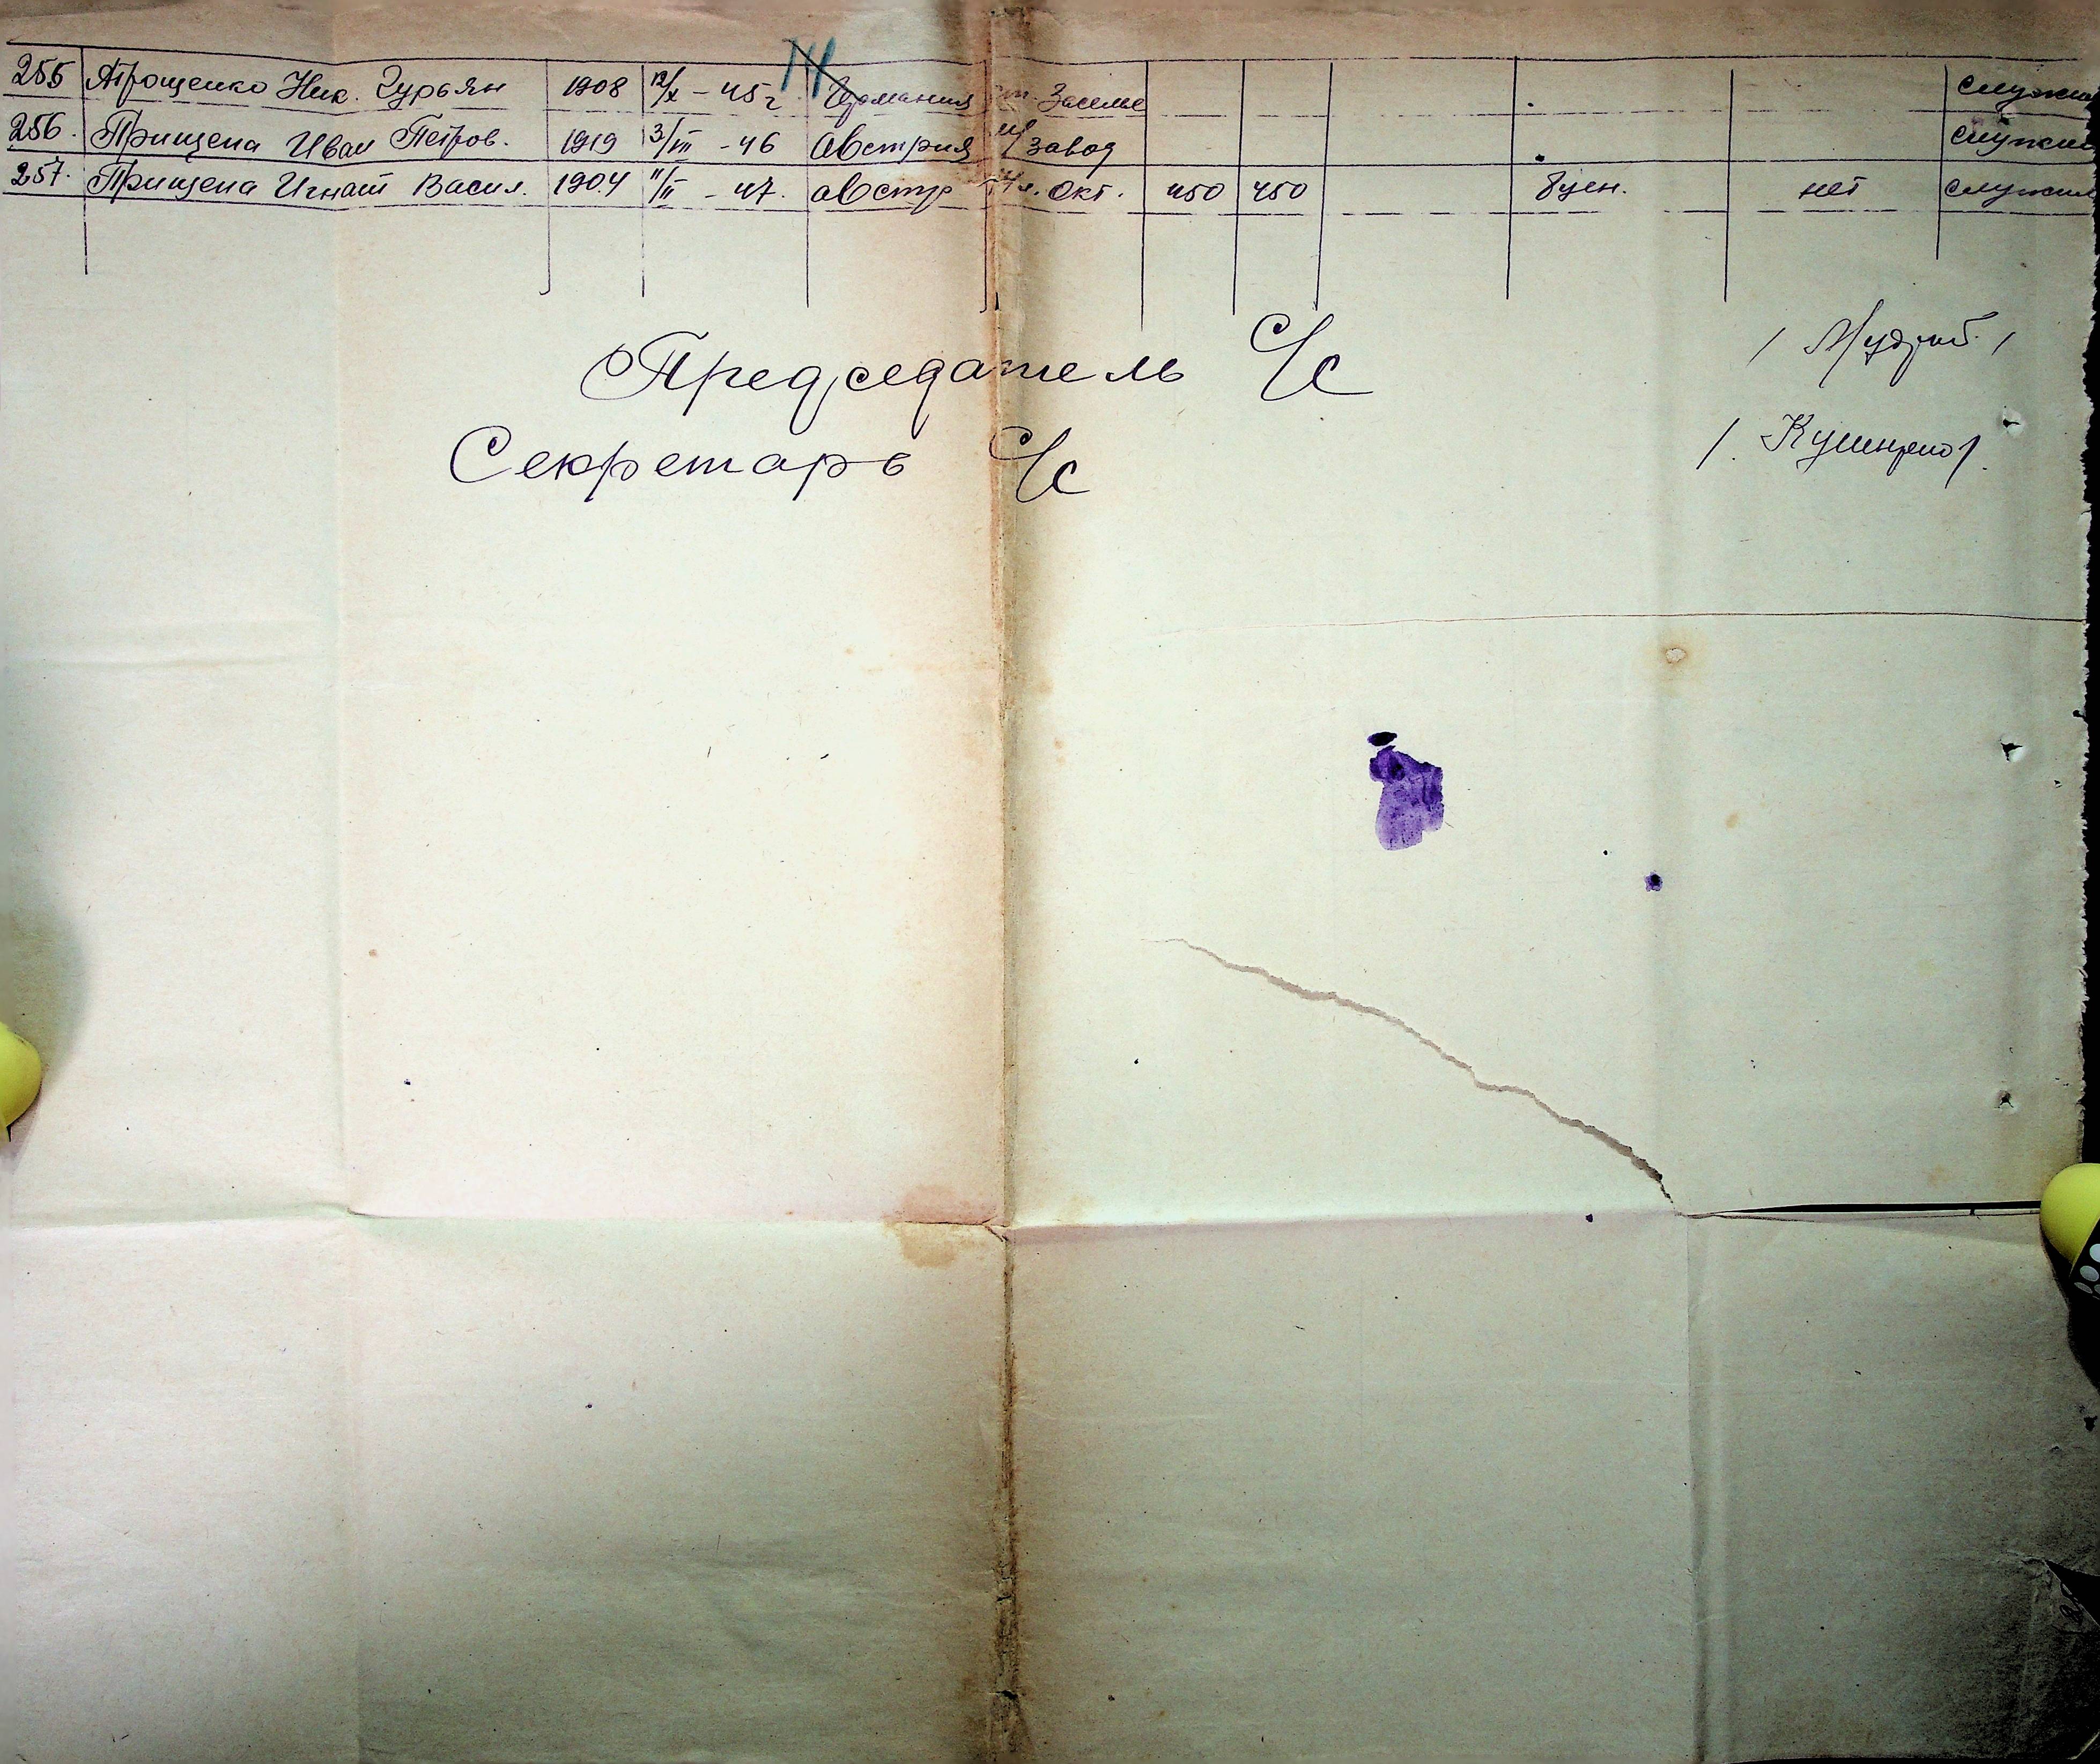 255 Атрощенко Ник. Гурьян 1908 12/X - 45 г. Германия ст. Заселье служил
256. Прищепа Иван Петров. 1919 3/III - 46 Австрия завод служил
257. Прищепа Игнат Васил. 1904 11/II - 47. австр окт. 450 450 нет служил
Председатель С/С / Мудрый. /
Секретарь С/С /